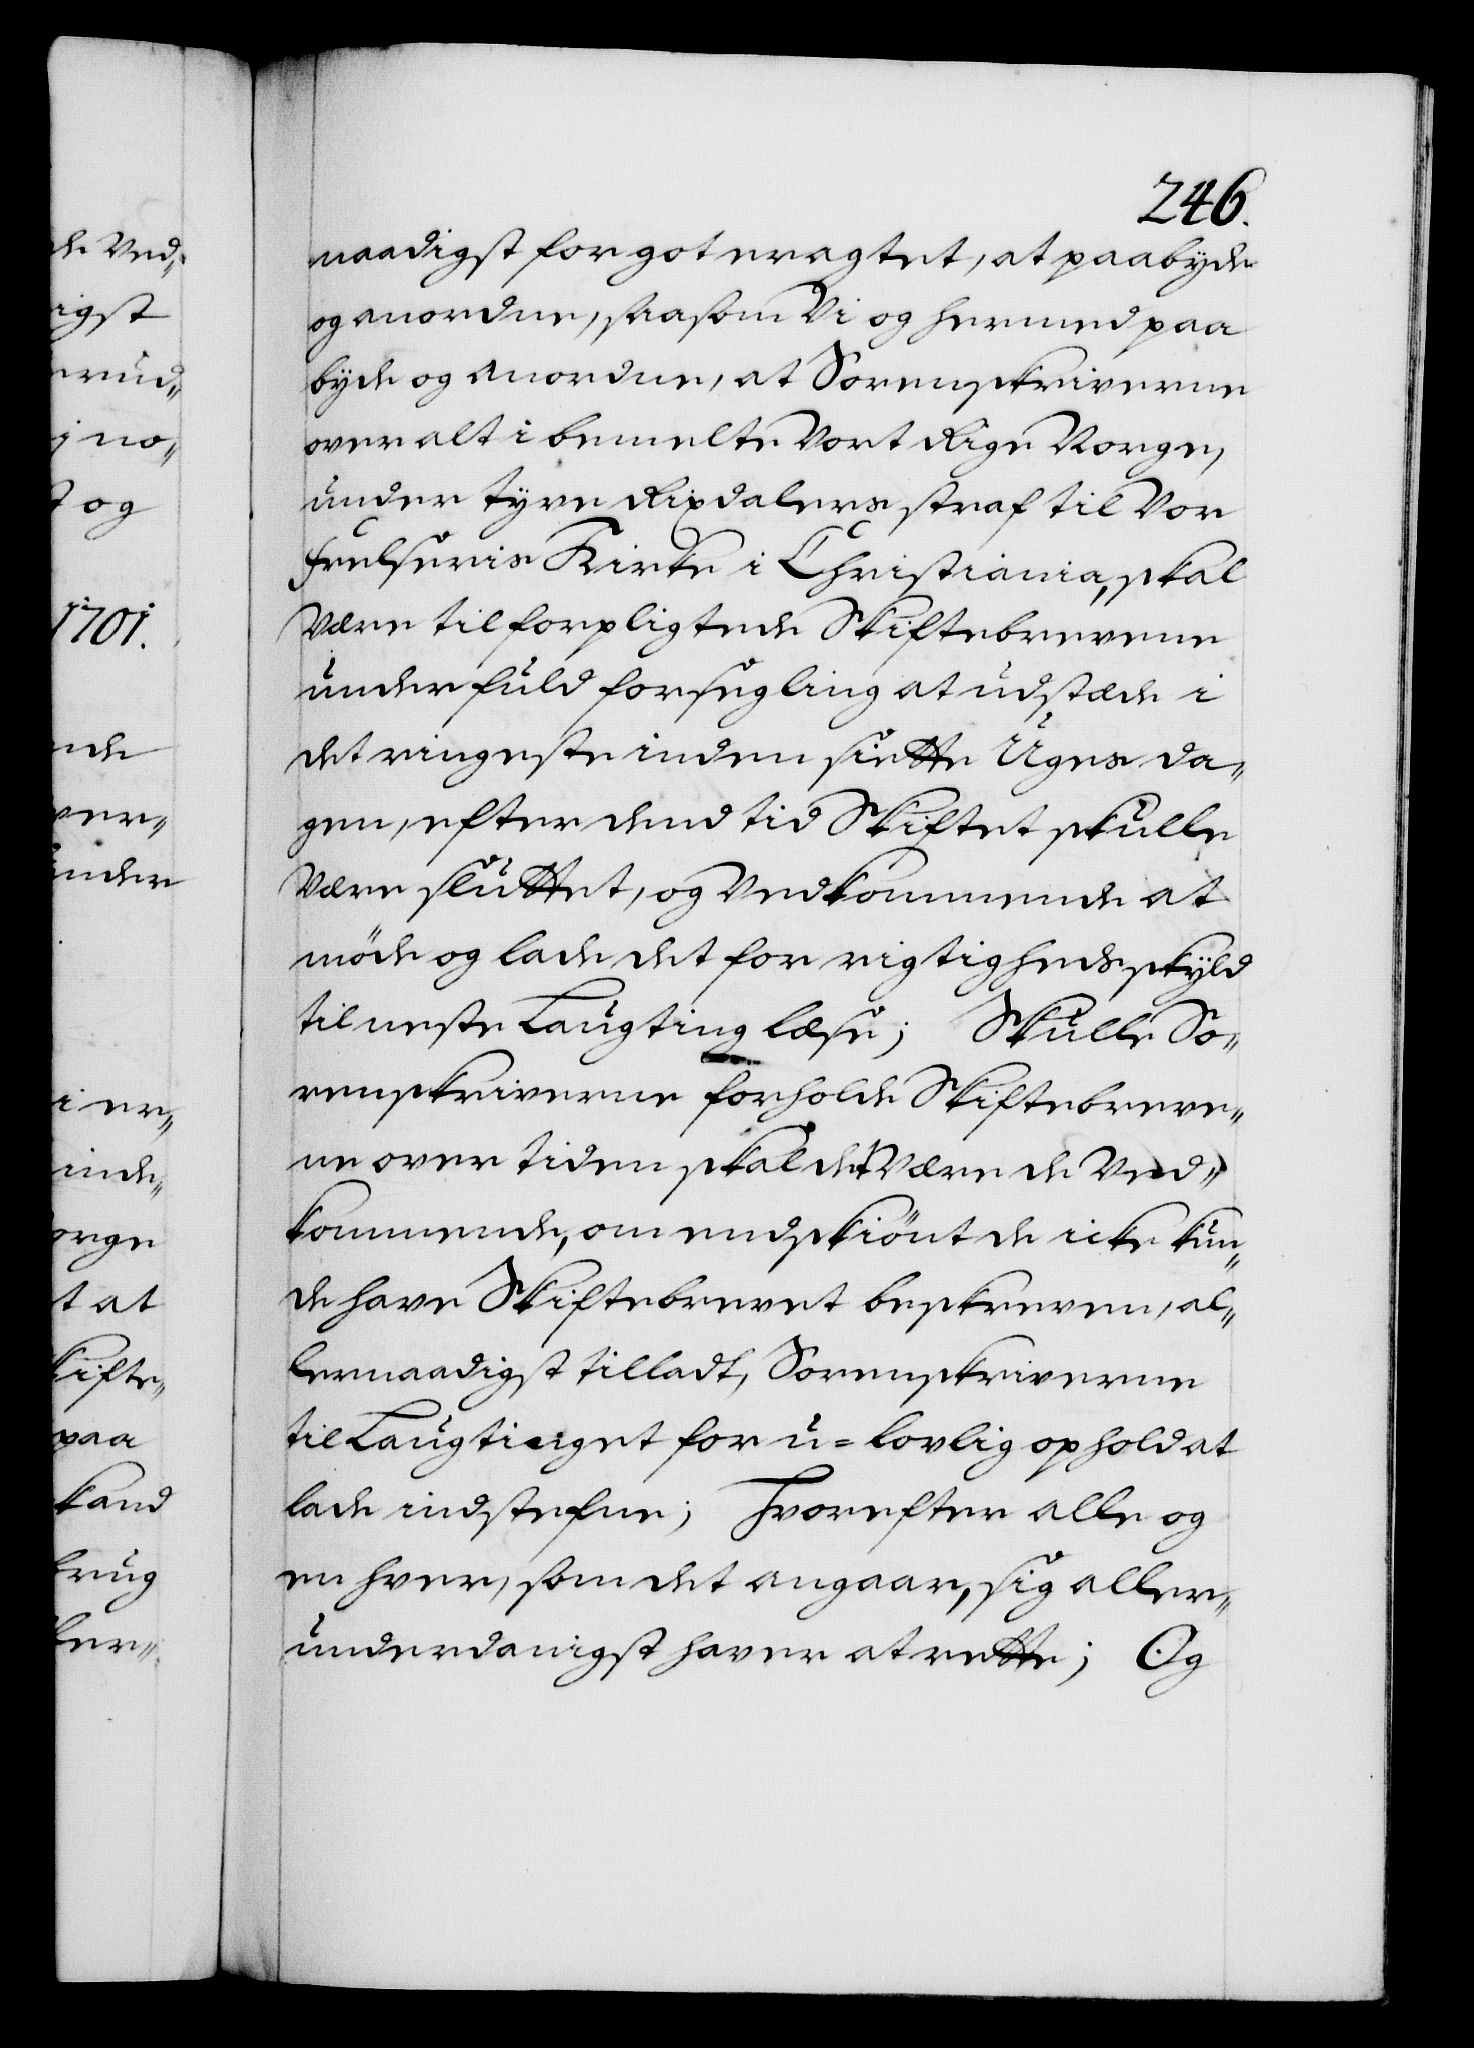 246.
naadigst for got eragtet, at paabyde
og anordne, saasom Vi og hermed paa
byde og anordne, at Sorenskriverne
over alt i bemelte Vort Rige Norge,
under tyve Rixdalers straf til Vor
Frelseris Kirke i Christiania, skal
Være tilforpligtede Skiftebrevene
under fuld forsegling at udstæde i
det ringeste inden siette Ugers da„
gen, efter dend tid Skiftet skulle
Være sluttet, og Vedkommende at
møde og lade det for rigtigheds skyld
til neste Laugting læse; Skulle So„
renskriverne forholde Skiftebreve„
ne over tiden skal det Være de Ved„
kommende, om endskiönt de icke kun„
de have Skiftebrevet beskreven, al„
lernaadigst tilladt, Sorenskriverne
til Laugtinget for u=lovlig ophold at
lade indstefne; Hvorefter alle og
en hver, som det angaar, sig aller„
underdanigst haver at rette; Og
de Ved„
igst
erud„
j no„
og
1701.
nde
ver„
under
i er„
inde„
orge
t at
kifte„
paa
kand
brug
ler„